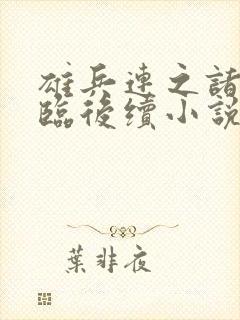 雄兵連之諸
臨後續小說
葉非夜